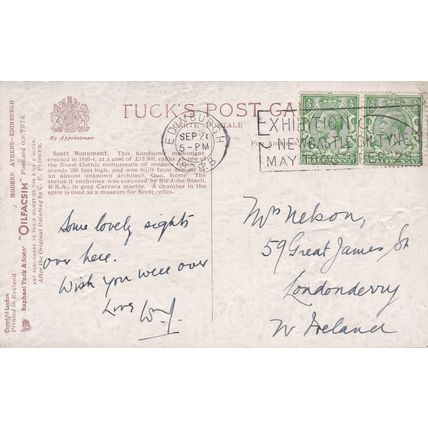 TUCK'S POST CARD
CARTE POSTALE
By Appointment
EDINBURGH
5-PM
EXHIBITION
NEWCASTLE-ON-TYNE
MAY
Scott Monument. This handsome monument
erected in 1840-4, at a cost of £15,500, ranks as one of
the finest Gothic monuments of modern times. It is
about 200 feet high, and was built from designs by
an almost unknown architect, Geo. Kemp. The
statue it enshrines was executed by Sir John Steell,
R.S.A., in grey Carrara marble. A chamber in the
spire is used as a museum for Scott relics.
Some lovely sights
over here.
Wish you were over
Love
Mrs Nelson,
59 Great James St
Londonderry
N Ireland
MODERN ATHENS-EDINBURGH
"OILFACSIM" Postcard
After the Original Painting by
Raphael Tuck & Sons'
Copyright London
Printed in England